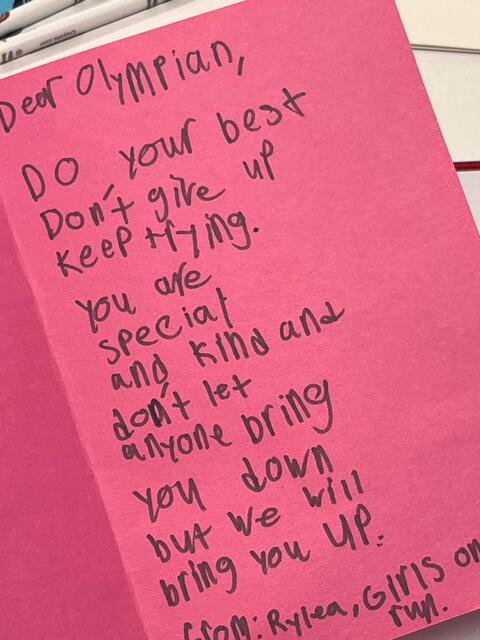 Dear Olympian,
Do your best
Don't give up
keep trying.
you are
special
and kind and
don't let
anyone bring
you down
but we will
bring you up.
From: Rylea, Girls on
run.